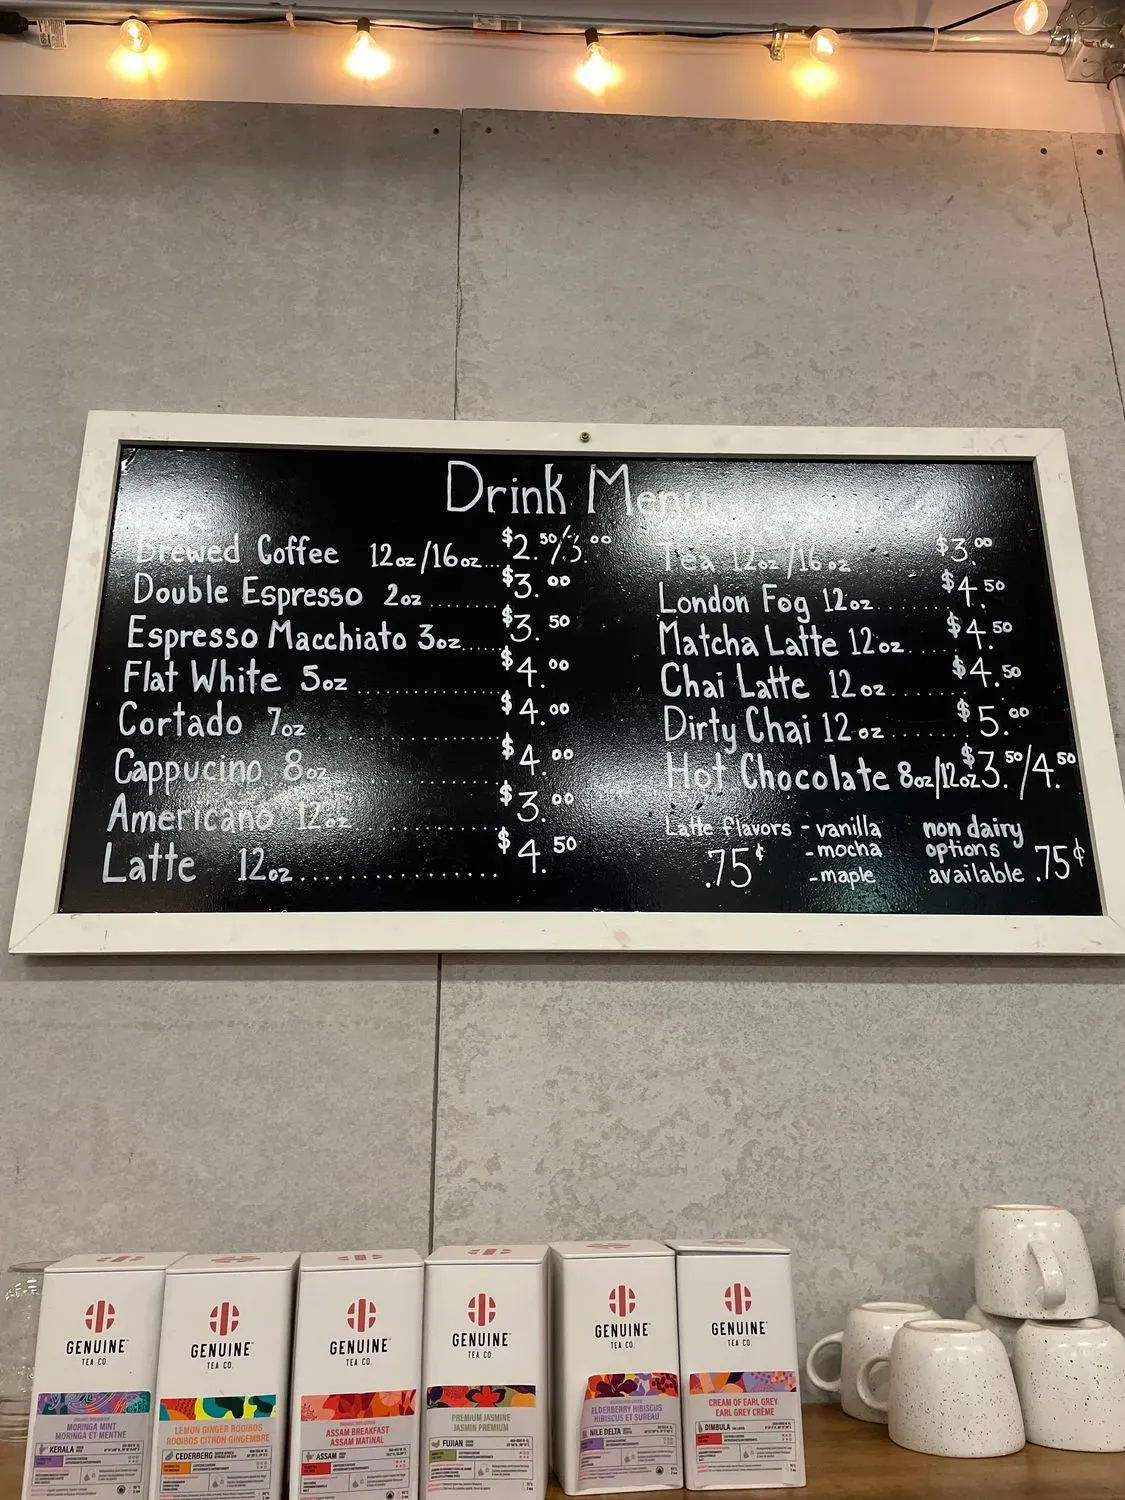 Drink Menu
Brewed Coffee 12oz/16oz... $2.50/3.00
Double Espresso 2oz....... $3.00
Espresso Macchiato 3oz..... $3.50
Flat White 5oz ............... $4.00
Cortado 7oz .................. $4.00
Cappucino 8oz ............... $4.00
Americano 12oz............. $3.00
Latte 12oz................. $4.50
Tea 12oz/16oz $3.00
London Fog 12oz....... $4.50
Matcha Latte 12oz.... $4.50
Chai Latte 12oz...... $4.50
Dirty Chai 12oz...... $5.00
Hot Chocolate 8oz/12oz $3.50/4.50
Latte flavors - vanilla
- mocha
- maple
.75¢
non dairy
options
available .75¢
GENUINE
TEA CO.
MORINGA MINT
MORINGA ET MENTHE
KERALA
GENUINE
TEA CO.
LEMON GINGER ROOIBOS
ROOIBOS CITRON GINGEMBRE
CEDERBERG
GENUINE
TEA CO.
ASSAM BREAKFAST
ASSAM MATINAL
ASSAM
GENUINE
TEA CO.
PREMIUM JASMINE
JASMIN PREMIUM
FUJIAN
GENUINE
TEA CO.
ELDERBERRY HIBISCUS
HIBISCUS ET SUREAU
NILE DELTA
GENUINE
TEA CO.
CREAM OF EARL GREY
EARL GREY CRÈME
DIMBULA